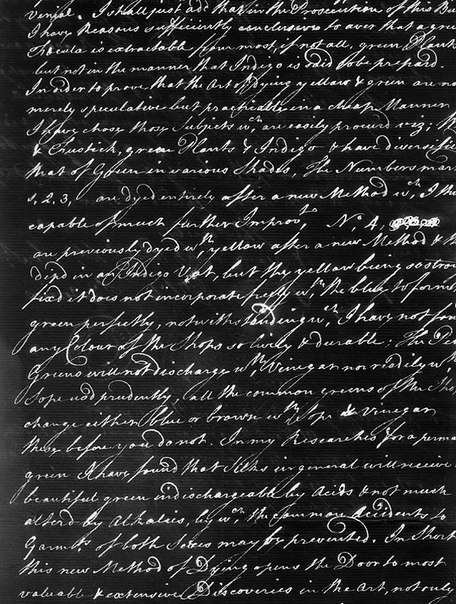 I shall just add that in the Prosecution of this Bu
I have Reasons sufficiently conclusive to aver that a gree
Fæcula is extractable from most, if not all, green Plant
but not in the manner that Indigo is said to be prepard.
In order to prove that the Art of Dying yellow & green are no
merely speculative but practicable in a cheap Manner
I have chose those Subjects wch. are easily procurd viz;
& Fustick, green Plants & Indigo & have diversifie
that of Green in various Shades, The Numbers mar
1, 2, 3, are dyed entirely after a new Method wch. I th
capable of much further Improvts. No. 4,
are previously dyed wth. yellow after a new Method & th
dipd in an Indigo Vat, but the yellow being so stron
fixd it does not incorporate freely wth. the blue to form
green perfectly, notwithstanding wch. I have not fou
any Colour of the Shops so lively & durable; The
Greens will not discharge wth. Vinegar nor readily w
Sope usd prudently, all the common greens of the Sho
change either blue or brown wth. Sope & Vinegar
these before you do not. In my Researches for a perma
green I have found that Silks in general will receive
beautiful green indischargeable by Acids & not much
alterd by Alkalis, by wch. the common Accidents to
Garmts. of both Sexes may be prevented. In Short
this new Method of Dying opens the Door to most
valuable & extensive Discoveries in the Art, not only